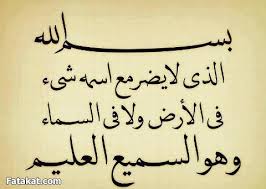 بسم الله
الذى لا يضر مع اسمه شىء
فى الأرض ولا فى السماء
وهو السميع العليم
Fatakat.com